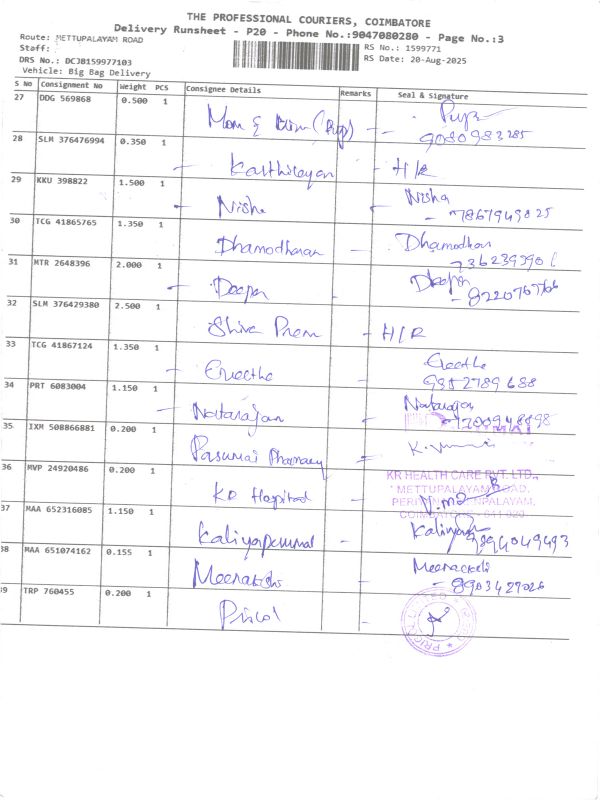 THE PROFESSIONAL COURIERS, COIMBATORE
Delivery Runsheet - P20 - Phone No.:9047080280 - Page No.:3
Route: METTUPALAYAM ROAD
RS No.: 1599771
Staff:
RS Date: 20-Aug-2025
DRS No.: DCJB159977103
Vehicle: Big Bag Delivery
S No Consignment No Weight PCS Consignee Details Remarks Seal & Signature
27 DDG 569868 0.500 1
9080983285
28 SLM 376476994 0.350 1
Karthikeyan - H/R
29 KKU 398822 1.500 1
Nisha - Nisha
- 7867949825
30 TCG 41865765 1.350 1
Dhamodharan - Dhamodhran
31 MTR 2648396 2.000 1
Deepa -
32 SLM 376429380 2.500 1
Shiva Prem - H/R
33 TCG 41867124 1.350 1
Geetha
9952789688
34 PRT 6083004 1.150 1
Natarajan - Natarajan
35 IXM 508866881 0.200 1
Pasumai Pharmacy
36 MVP 24920486 0.200 1
KR HEALTH CARE PVT. LTD.,
METTUPALAYAM ROAD,
Hospital
37 MAA 652316085 1.150 1
Kaliyaperumal -
9894049493
38 MAA 651074162 0.155 1
Meenakshi -
- 8903429026
39 TRP 760455 0.200 1
Pricol